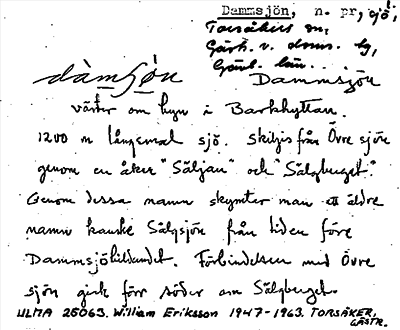 Dammsjön, n. pr., sjö i
Torsåkers sn,
Gästr. v. doms. hg,
Gävl. län.
dàmsjö́n Dammsjön
väster om byn i Barkhyttan.
1200 m långsmal sjö. Skiljs från Övre sjön
genom en åker "Säljan" och "Sälgberget."
Genom dessa namn skymtar man ett äldre
namn kanske Sälgsjön från tiden före
Dammsjöbildandet. Förbindelsen med Övre
sjön gick förr söder om Sälgberget.
ULMA 25063. William Eriksson 1947-1963. TORSÅKER,
GÄSTR.